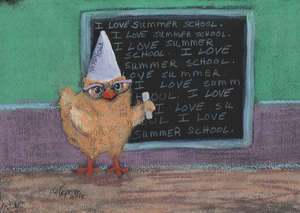 I LOVE SUMMER SCHOOL.
I LOVE SUMMER SCHOOL.
I LOVE SUMMER
SCHOOL. I LOVE
SUMMER SCHOOL. I
LOVE SUMMER
SCHOOL. I LOVE SUMM
OOL. I LOVE
I LOVE SU
OOL. I LOVE
SUMMER SCHOOL.